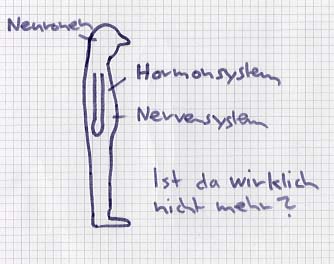 Neuronen
Hormonsystem
Nervensystem
Ist da wirklich
nicht mehr?